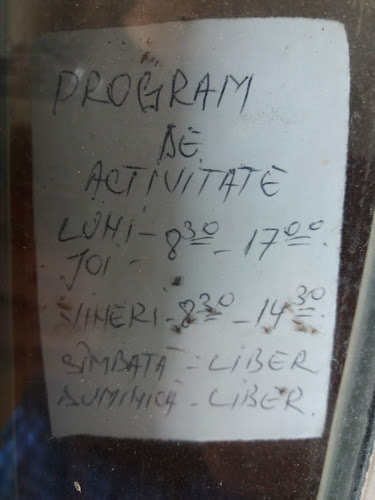 PROGRAM
DE
ACTIVITATE
LUNI - 8³⁰ - 17⁰⁰.
JOI -
VINERI - 8³⁰ - 14³⁰.
SÎMBATĂ - LIBER
DUMINICĂ - LIBER.